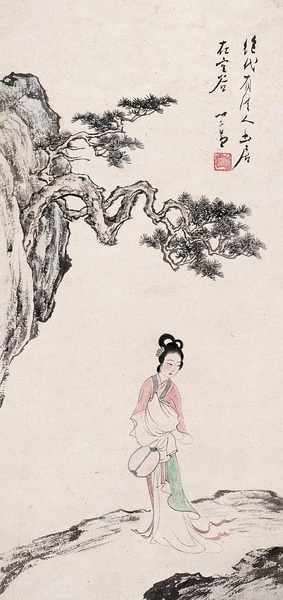 絕代有佳人幽居
在空谷 心畬